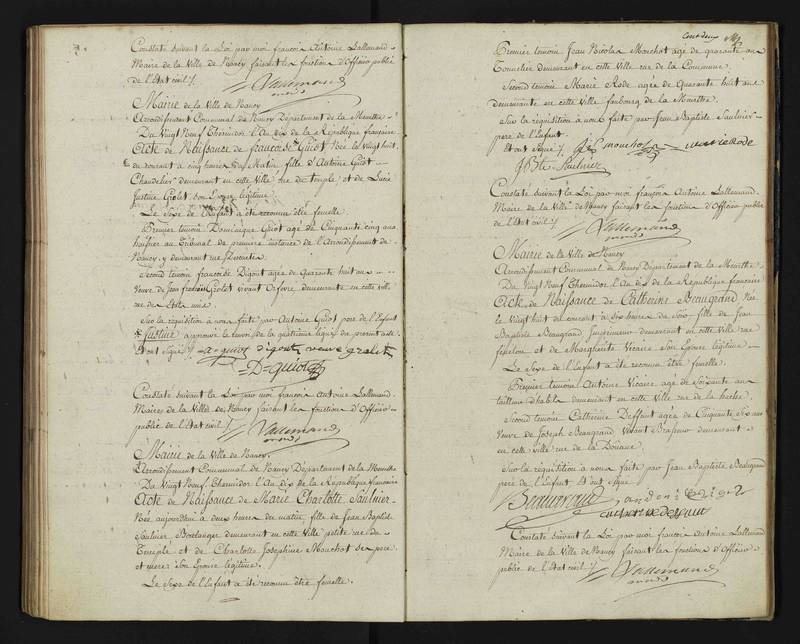 Constaté suivant la Loi par moi françois Antoine Lallemand
Maire de la Ville de Nancy faisant les fonctions d'Officier public
de l'état civil ./.
Lallemand
Mairie de la Ville de Nancy
Arrondissement Communal de Nancy Département de la Meurthe
Du Vingt Neuf Thermidor l'An dix de la République francaise
Acte de Naissance de francoise Guiot Née le vingt huit
du courant à cinq heures du Matin fille d'Antoine Guiot
Chandelier demeurant en cette Ville rue du temple, et de Lucie
Justine Grolet son Epouse légitime
Le Sexe de l'Enfant a été reconnu être femelle.
Premier temoin Dominique Guiot agé de Cinquante cinq ans
huissier au Tribunal de premiere instance de l'Arrondissement de
Nancy y demeurant rue
Second temoin francoise Digout agée de Quarante huit ans
Veuve de Jean Grolet vivant Orfevre demeurante en cette ville
rue de
Sur la réquisition à nous faite par Antoine Guiot pere de l'Enfant
Justine approuvé
Et ont Signé ./. a guiot digout veuve grolet
D. guiot
Constaté suivant la Loi par moi françois Antoine Lallemand
Maire de la Ville de Nancy faisant les fonctions d'Officier
public de l'Etat civil ./.
Lallemand
Mairie de la Ville de Nancy.
Arrondissement Communal de Nancy Département de la Meurthe
Du Vingt Neuf Thermidor l'An dix de la République francaise
Acte de Naissance de Marie Charlotte Saulnier
Née aujourd'hui à deux heures du matin, fille de Jean Baptiste
Saulnier Boulanger demeurant en cette Ville petite rue du
Temple et de Charlotte Josephine Mouchot ses pere
et mere Son Epouse légitime.
Le Sexe de l'Enfant a été reconnu être femelle.
Cent deux
Premier temoin Jean Nicolas Mouchot agé de quarante ans
Tonnelier demeurant en cette Ville rue de la Commune.
Second temoin Marie Rode agée de Quarante huit ans
demeurante en cette Ville faubourg de la Meurthe.
Sur la réquisition à nous faite par Jean Baptiste Saulnier
pere de l'Enfant.
Et ont Signé ./. mouchot marie Rode
J Bte Saulnier
Constaté suivant la Loi par moi françois Antoine Lallemand
Maire de la Ville de Nancy faisant les fonctions d'Officier public
de l'Etat civil ./.
Lallemand
Mairie de la Ville de Nancy
Arrondissement Communal de Nancy Département de la Meurthe
Du Vingt Neuf Thermidor l'An dix de la République francaise
Acte de Naissance de Catherine Beaugrand Née
le Vingt huit du courant à Six heures du Soir fille de Jean
Baptiste Beaugrand Imprimeur demeurant en cette Ville rue
fénelon et de Margueritte Vicaire Son Epouse légitime
Le Sexe de l'Enfant a été reconnu être femelle.
Premier temoin Antoine Vicaire agé de Soixante ans
tailleur d'habits demeurant en cette Ville rue de la
Second temoin Catherine Deffaut agée de Cinquante Six ans
Veuve de Joseph Beaugrand Vivant demeurant
en cette ville rue de la Douane.
Sur la réquisition à nous faite par Jean Baptiste Beaugrand
pere de l'Enfant. Et ont Signé
Beaugrand
Constaté suivant la Loi par moi françois Antoine Lallemand
Maire de la Ville de Nancy faisant les fonctions d'Officier
public de l'Etat civil ./.
Lallemand